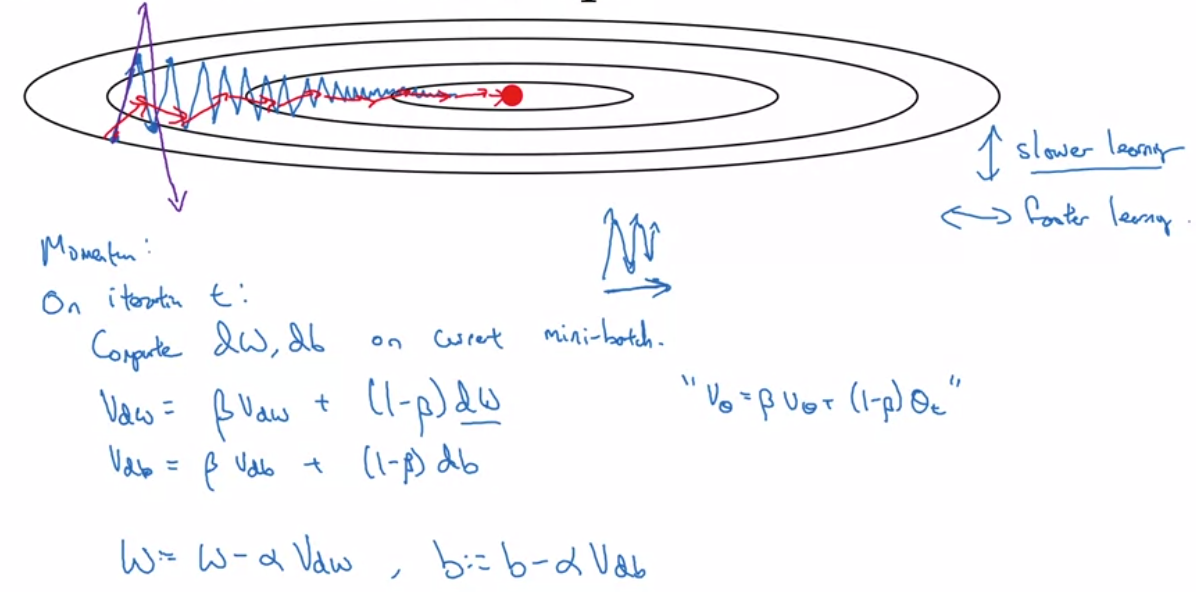 slower learning
faster learning
Momentum:
On iteration t:
Compute dW, db on current mini-batch.
Vdw = βVdw + (1-β)dW
"Vθ = βVθ + (1-β)θt"
Vdb = βVdb + (1-β)db
W := W - αVdw , b := b - αVdb